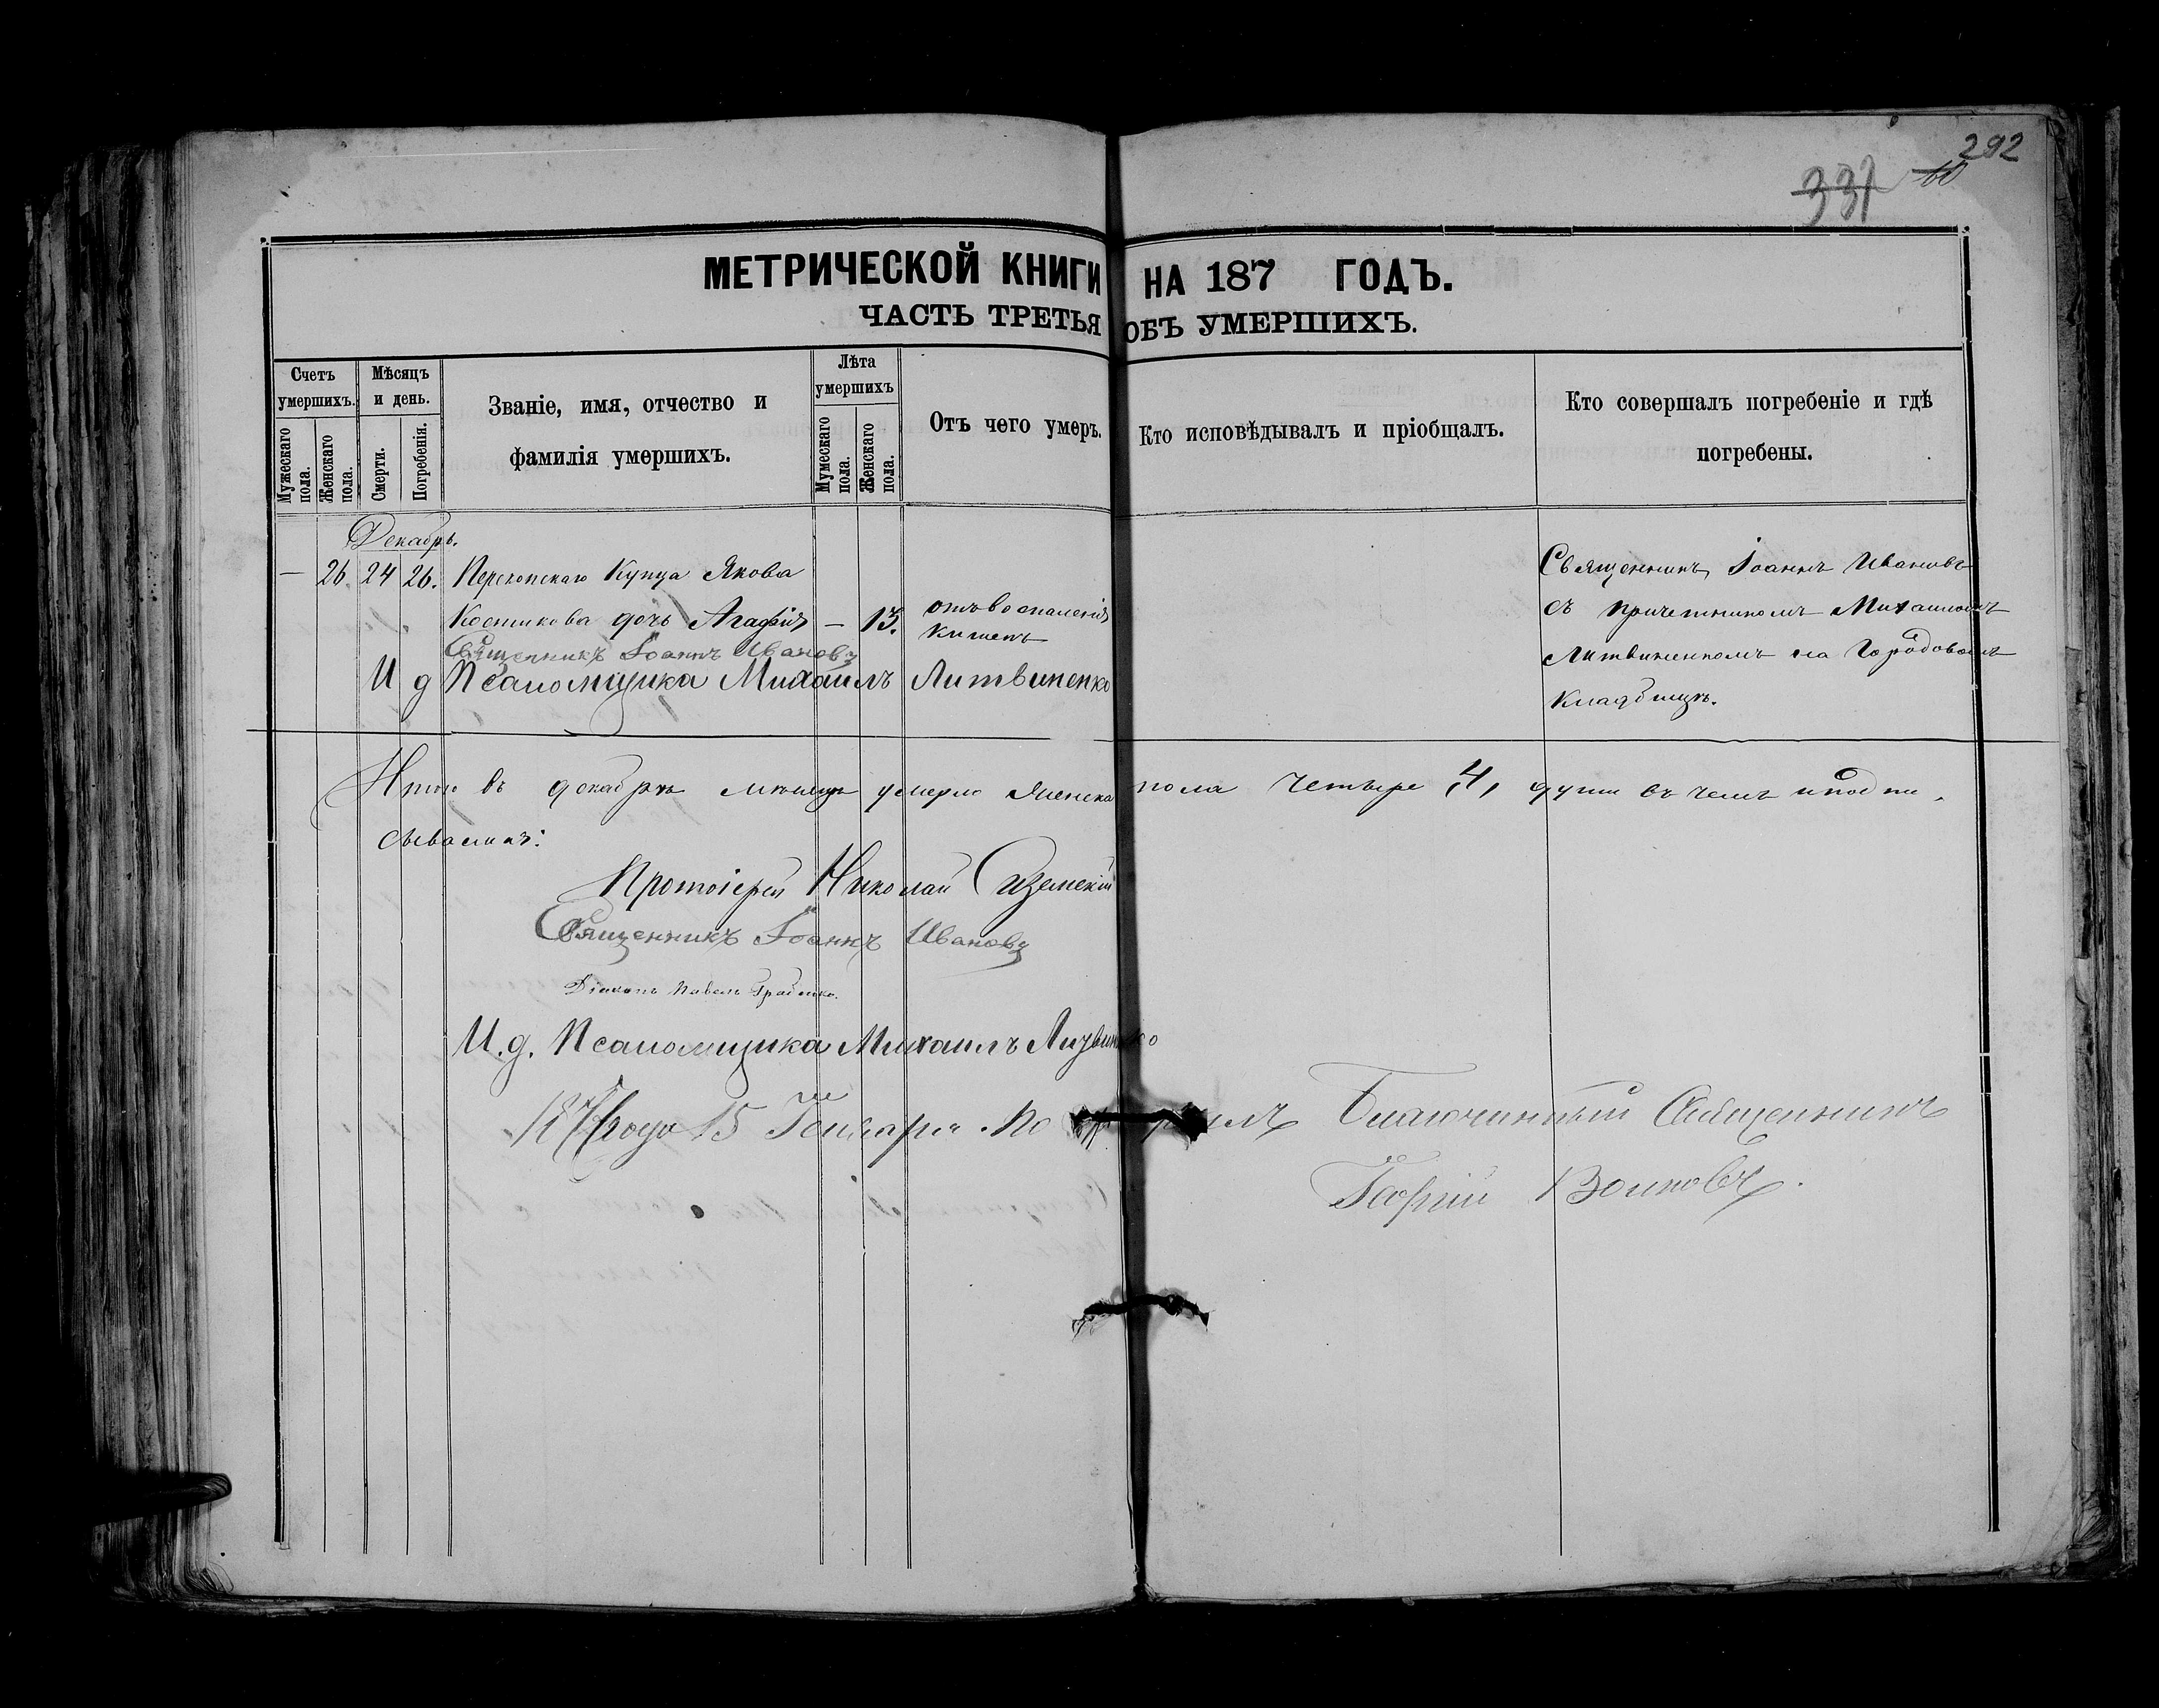 292
337 60
МЕТРИЧЕСКОЙ КНИГИ НА 187 ГОДЪ.
ЧАСТЬ ТРЕТЬЯ ОБЪ УМЕРШИХЪ.
Счетъ умершихъ.
Мужескаго пола.
Женскаго пола.
Мѣсяцъ и день.
Смерти.
Погребенія.
Званіе, имя, отчество и
фамилія умершихъ.
Лѣта умершихъ
Мужескаго пола.
Женскаго пола.
Отъ чего умеръ.
Кто исповѣдывалъ и пріобщалъ.
Кто совершалъ погребеніе и гдѣ
погребены.
Декабрь.
— 26. 24 26. Перекопскаго Купца Якова
Костикова дочь Агафія — 13.
отъ воспаленія
кишекъ
Священникъ Іоаннъ Ивановъ
съ причетникомъ Михаиломъ
Литвиненкомъ на Городовомъ
кладбищѣ.
Священникъ Іоаннъ Ивановъ
И д Псаломщика Михаилъ Литвиненко
Итого въ декабрѣ мѣсяцѣ умерло женска пола четыре 4, души въ чемъ и подпи-
сываемъ:
Протоіерей Николай
Священникъ Іоаннъ Ивановъ
Діаконъ Павелъ
И. д. Псаломщика Михаилъ Литвиненко
года 15 Генваря Благочинный Священникъ
Георгій